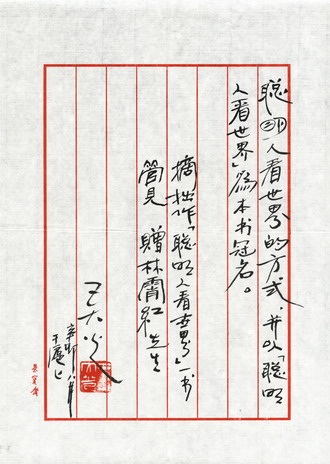 聪明人看世界的方式，并以「聪明
人看世界」为本书冠名。
摘拙作「聪明人看世界」一书
管见 赠林霄红先生
王大
辛卯八月
于